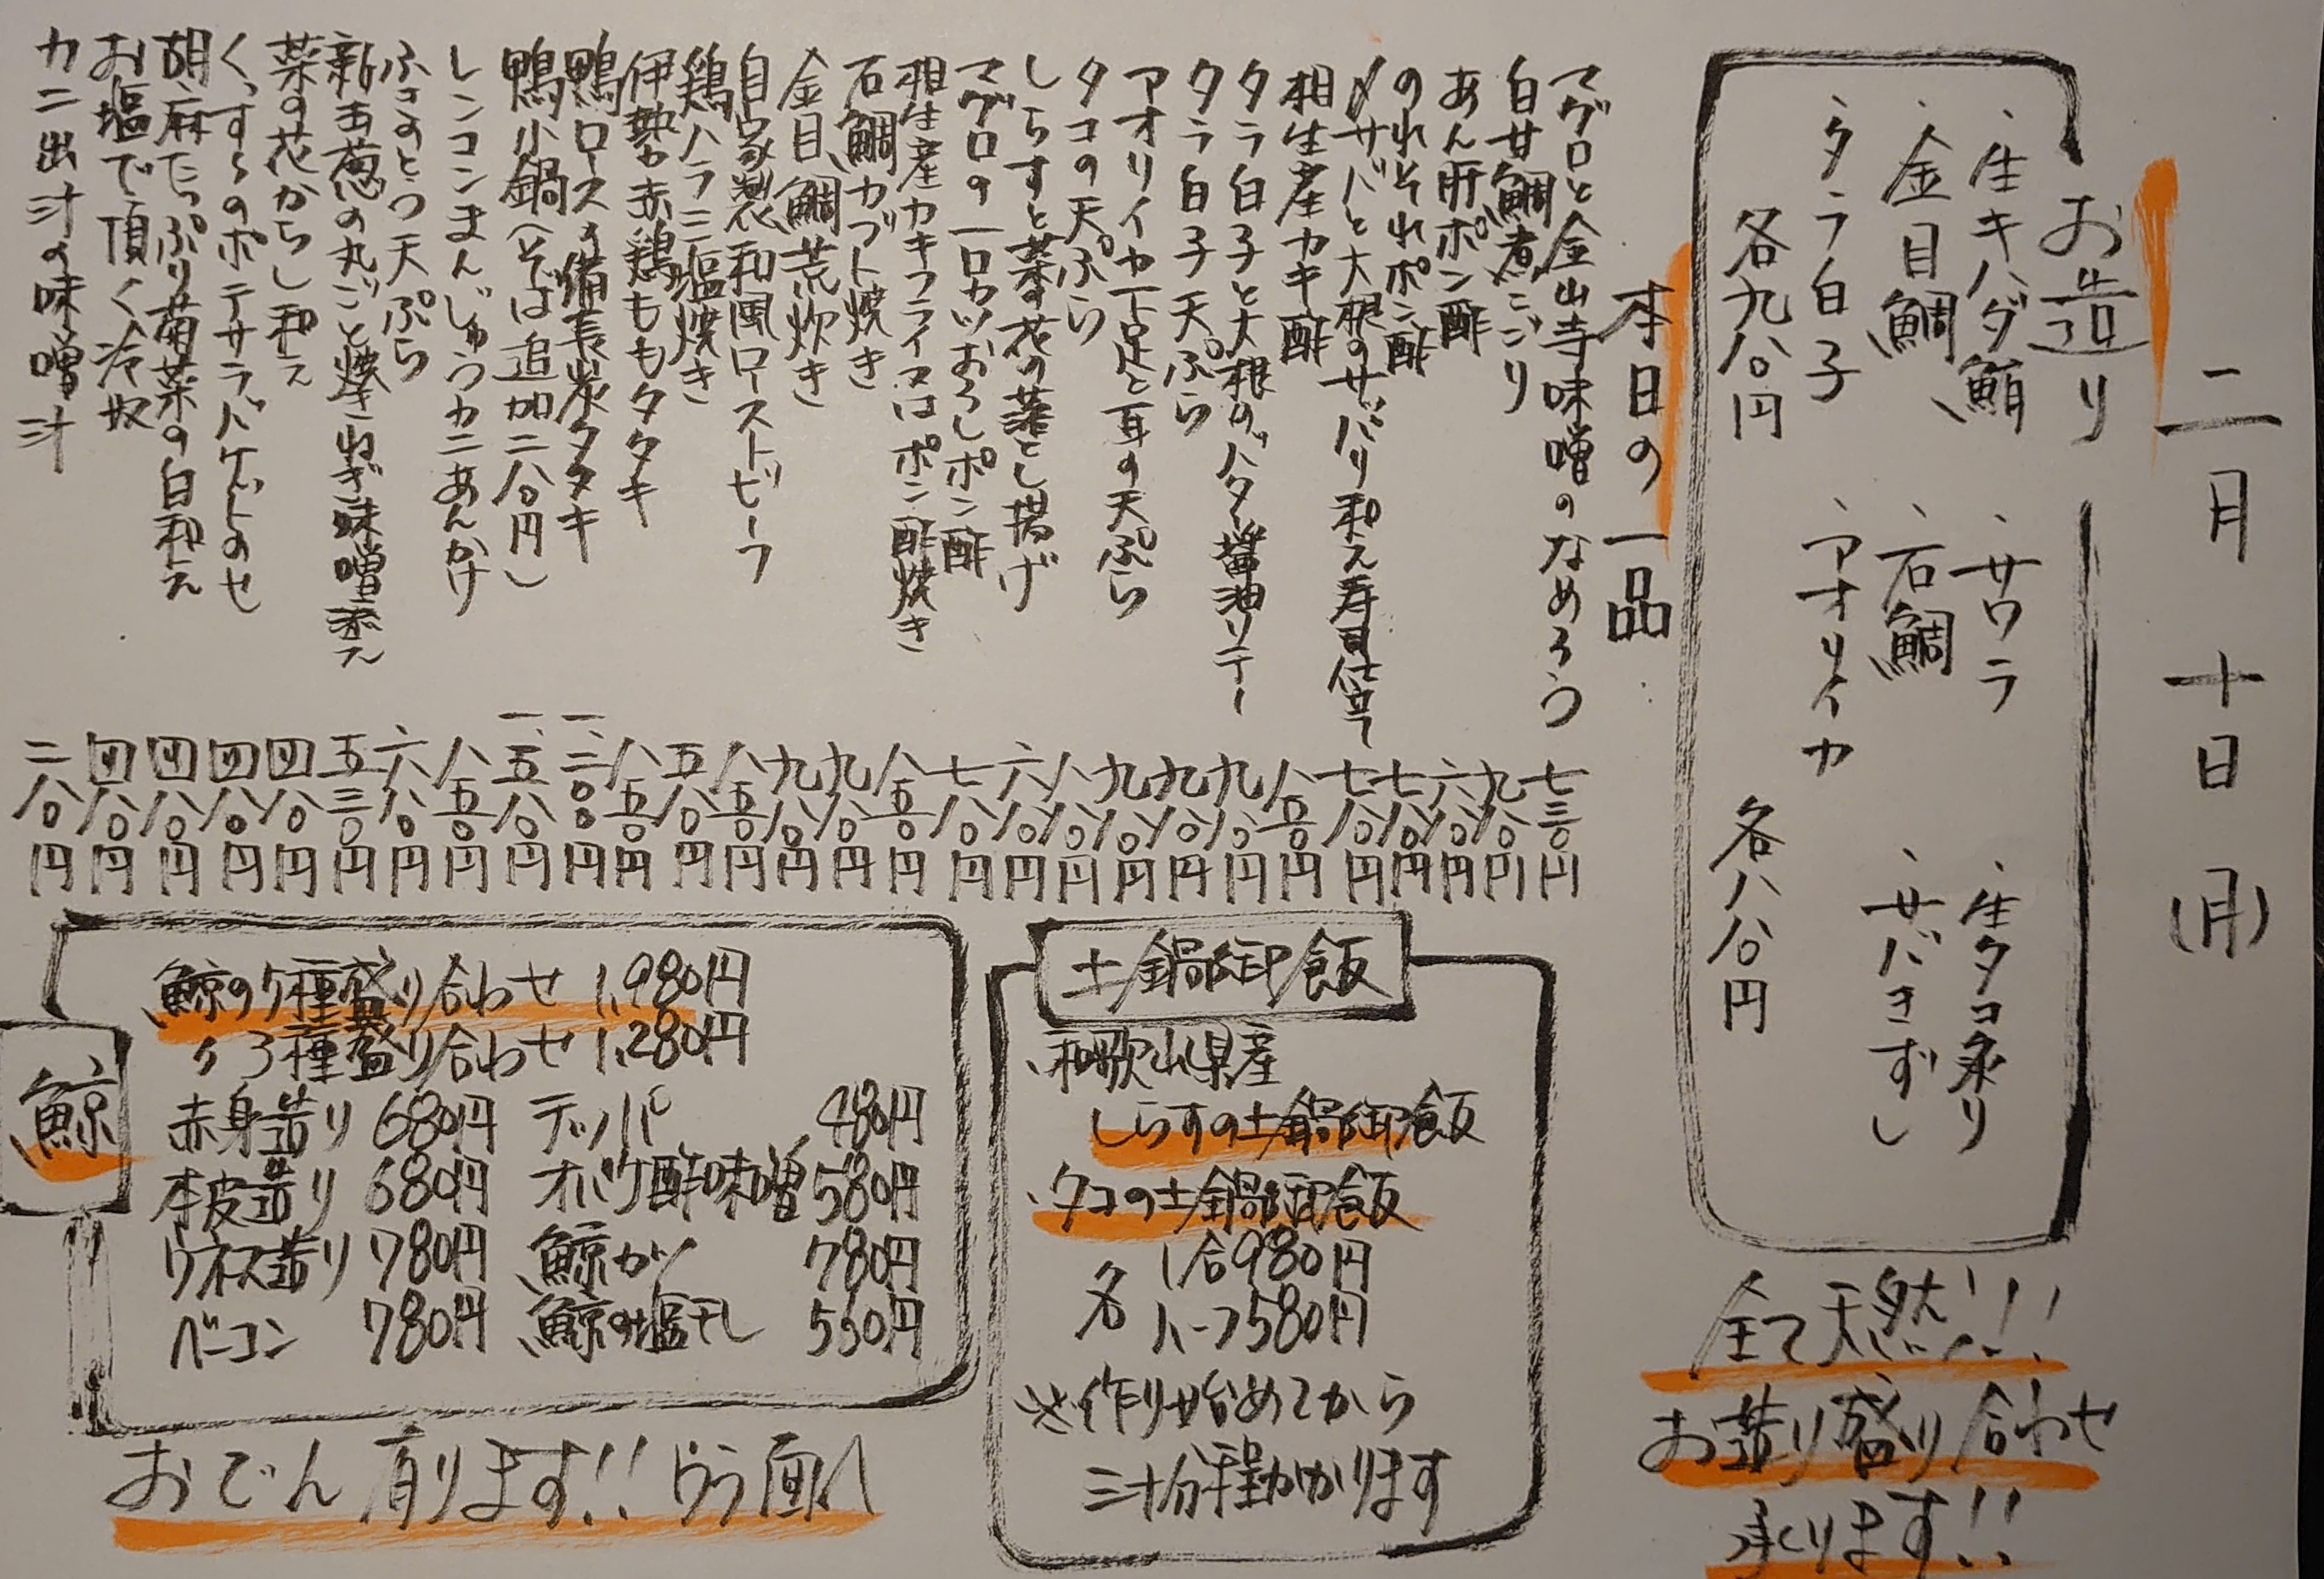 二月十日(月)
お造り
・生キハダ鮪 ・サワラ ・生タコ炙り
・金目鯛 ・石鯛 ・サバきずし
・タラ白子 ・アオリイカ
各九八〇円 各八八〇円
全て天然!!!
お造り盛り合わせ
承ります!!
本日の一品
マグロと金山寺味噌のなめろう 七三〇円
白甘鯛煮こごり 九八〇円
あん肝ポン酢 六八〇円
のれそれポン酢 七八〇円
〆サバと大根のサッパリ和え寿司仕立て 七八〇円
相生産カキ酢 八五〇円
タラ白子と大根のバター醤油ソテー 九八〇円
タラ白子天ぷら 九八〇円
アオリイカ下足と耳の天ぷら 九八〇円
タコの天ぷら 八八〇円
しらすと菜の花の落とし揚げ 六八〇円
マグロの一口カツおろしポン酢 七八〇円
相生産カキフライ又はポン酢焼き 八五〇円
石鯛カブト焼き 九八〇円
金目鯛荒炊き 九八〇円
自家製和風ローストビーフ 八五〇円
鶏ハラミ塩焼き 五八〇円
伊勢赤鶏ももタタキ 八五〇円
鴨ロースの備長炭タタキ 一、二〇〇円
鴨小鍋(そば追加二八〇円) 一、五八〇円
レンコンまんじゅうカニあんかけ 八五〇円
ふきのとう天ぷら 六八〇円
新玉葱の丸ごと焼きねぎ味噌添え 五三〇円
菜の花からし和え 四八〇円
くんすらのポテサラバケットのせ 四八〇円
胡麻たっぷり菊菜の白和え 四八〇円
お塩で頂く冷奴 四八〇円
カニ出汁の味噌汁 二八〇円
土鍋御飯
・和歌山県産
しらすの土鍋御飯
・タコの土鍋御飯
各 1合980円
ハーフ580円
※作り始めてから
三十分程かかります
鯨
鯨の7種盛り合わせ 1,980円
〃 3種盛り合わせ 1,280円
赤身造り 680円 テッパ 480円
本皮造り 680円 オバケ酢味噌 580円
ウネス造り 780円 鯨カツ 780円
ベーコン 780円 鯨の塩干し 550円
おでん有ります!!ウラ面へ